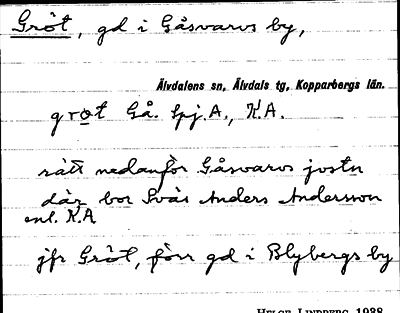 Gröt, gd i Gåsvarvs by,
Älvdalens sn, Älvdals tg, Kopparbergs län.
grot Gå. Spj.A., K.A.
rätt nedanför Gåsvarvs
där bor Anders Andersson
enl. K.A
jfr Gröt, förr gd i Blybergs by
HELGE LINDBERG 1938